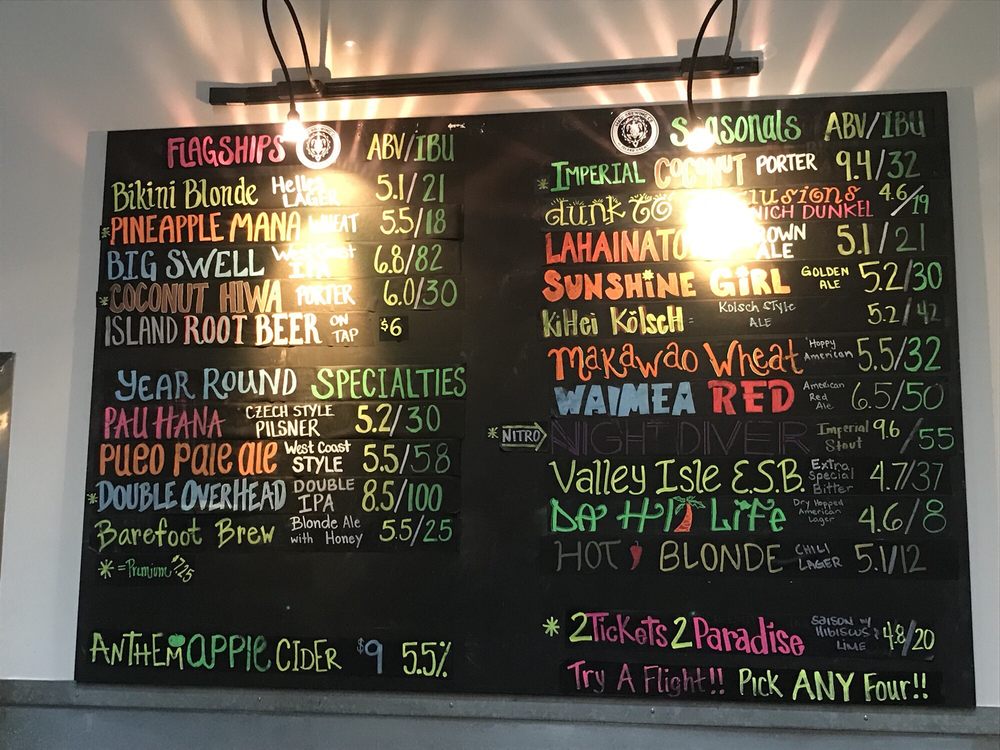 FLAGSHIPS ABV/IBU
Bikini Blonde Helles LAGER 5.1/21
*PINEAPPLE MANA WHEAT 5.5/18
BIG SWELL West Coast IPA 6.8/82
*COCONUT HIWA PORTER 6.0/30
ISLAND ROOT BEER ON TAP $6
YEAR ROUND SPECIALTIES
PAU HANA CZECH STYLE PILSNER 5.2/30
PUEO PALE ALE West Coast STYLE 5.5/58
*DOUBLE OVERHEAD DOUBLE IPA 8.5/100
Barefoot Brew Blonde Ale with Honey 5.5/25
* = Premium $7.25
ANTHEM APPLE CIDER $9 5.5%
Seasonals ABV/IBU
*IMPERIAL COCONUT PORTER 9.4/32
dunk 4.6/19
DUNKEL
ALE 5.1/21
SUNSHINE GIRL GOLDEN ALE 5.2/30
KiHei KölscH Kölsch Style ALE 5.2/42
Makawao Wheat Hoppy American 5.5/32
WAIMEA RED American Red Ale 6.5/50
*NITRO NIGHT DIVER Imperial Stout 9.6/55
Valley Isle E.S.B. Extra Special Bitter 4.7/37
DA HI Life Dry Hopped American Lager 4.6/8
HOT BLONDE CHILI LAGER 5.1/12
* 2Tickets 2Paradise SAISON w/ HIBISCUS & LIME 4.8/20
Try A Flight!! Pick ANY Four!!